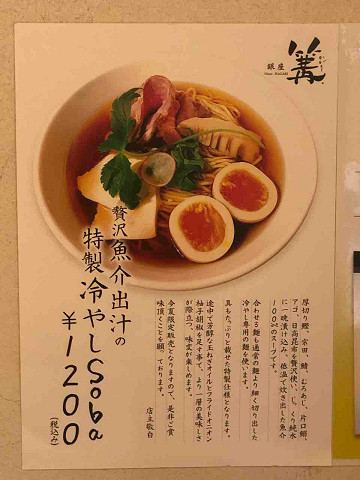 銀座
Ginza KAGARI
篝
かがり
贅沢魚介出汁の
特製冷やしSoba
¥1200
(税込み)
厚切り鰹、宗田、鯖、むろあじ、片口鰯、
アゴ、日高昆布を贅沢使い、じっくり純水
に一晩漬け込み、低温で炊き出した魚介
100%のスープです。
合わせる麺も通常の麺より細く切り出した
冷やし専用の麺を使います。
具もたっぷりと載せた特製仕様となります。
途中で芳醇な玉ねぎオイルとフライドオニオン
柚子胡椒を足す事で、より一層の美味しさ
が際立つ、味変が楽しめます。
今夏限定販売となりますので、是非ご賞
味頂くことを願っております。
店主敬白